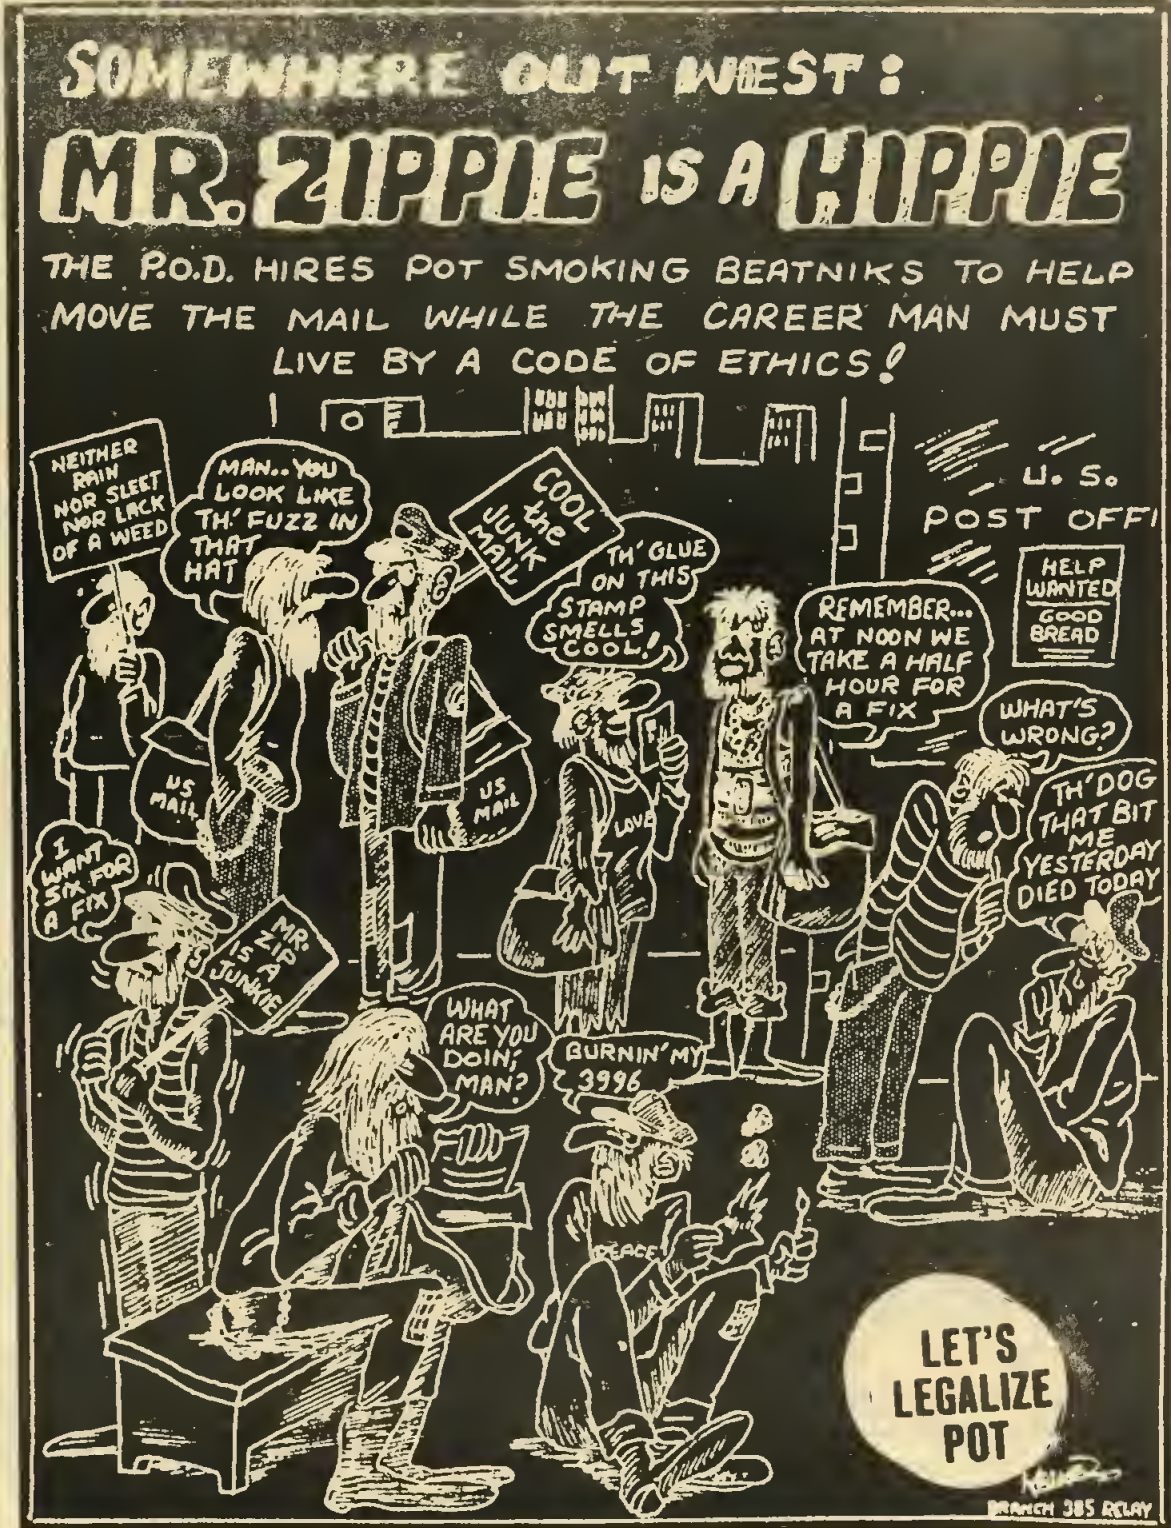 SOMEWHERE OUT WEST:
MR. ZIPPIE IS A HIPPIE
THE P.O.D. HIRES POT SMOKING BEATNIKS TO HELP
MOVE THE MAIL WHILE THE CAREER MAN MUST
LIVE BY A CODE OF ETHICS!
NEITHER
RAIN
NOR SLEET
NOR LACK
OF A WEED
MAN.. YOU
LOOK LIKE
TH' FUZZ IN
THAT
HAT
COOL
the
JUNK
MAIL
TH' GLUE
ON THIS
STAMP
SMELLS
COOL!
U.S.
POST OFFI
HELP
WANTED
GOOD
BREAD
REMEMBER...
AT NOON WE
TAKE A HALF
HOUR FOR
A FIX
WHAT'S
WRONG?
TH' DOG
THAT BIT
ME
YESTERDAY
DIED TODAY
US
MAIL
US
MAIL
LOVE
I
WANT
SIX FOR
A FIX
MR.
ZIP
IS A
JUNKIE
WHAT
ARE YOU
DOIN',
MAN?
BURNIN' MY
3996
PEACE
LET'S
LEGALIZE
POT
BRANCH 385 RELAY